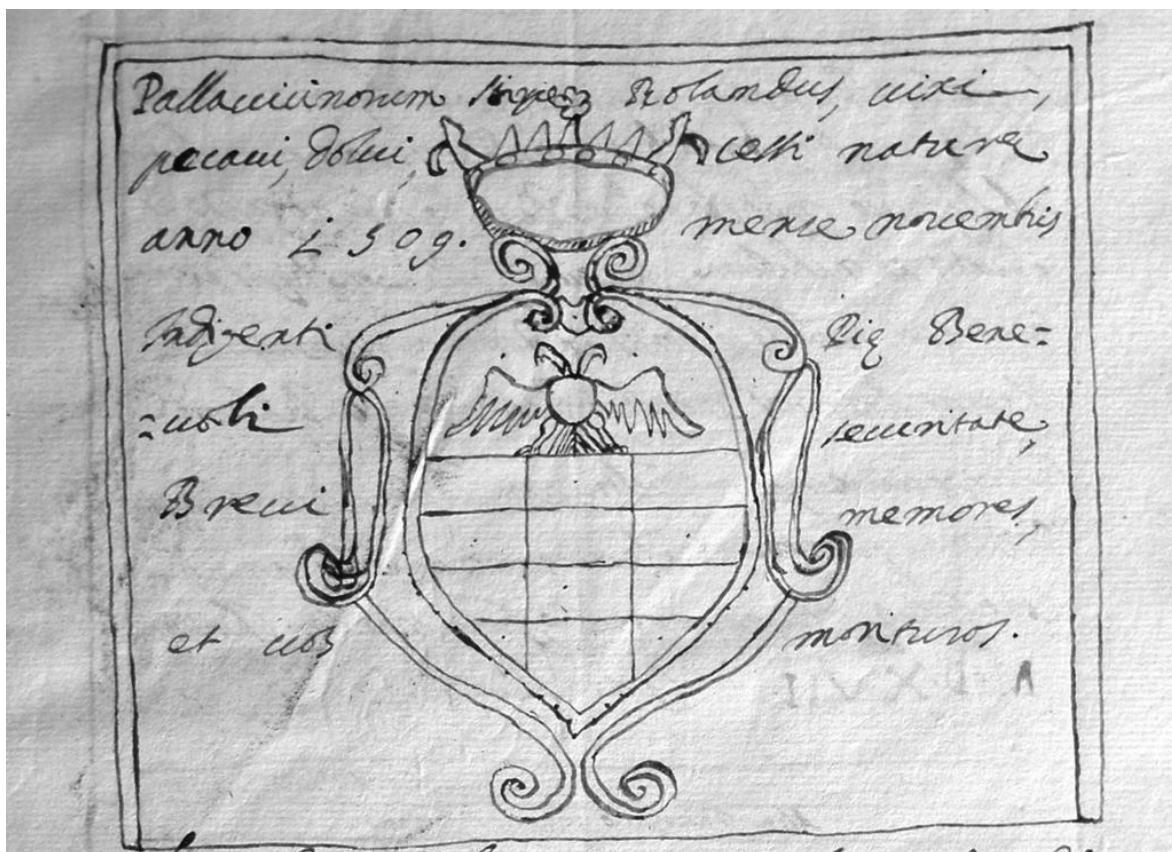 Pallauicinorum stirpe Rolandus, uixi,
pecaui, dolui, cessi naturæ
anno 1509. mense nouembris
Indigenti Pię Bene=
=uoli secutitate,
Breui memores,
et uos morituros.